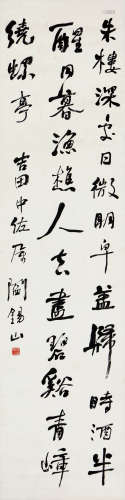 朱樓深處日微明皁蓋歸時酒半
醒日暮漁樵人去盡碧谿青嶂
繞螺亭 吉田中佐屬 閻錫山